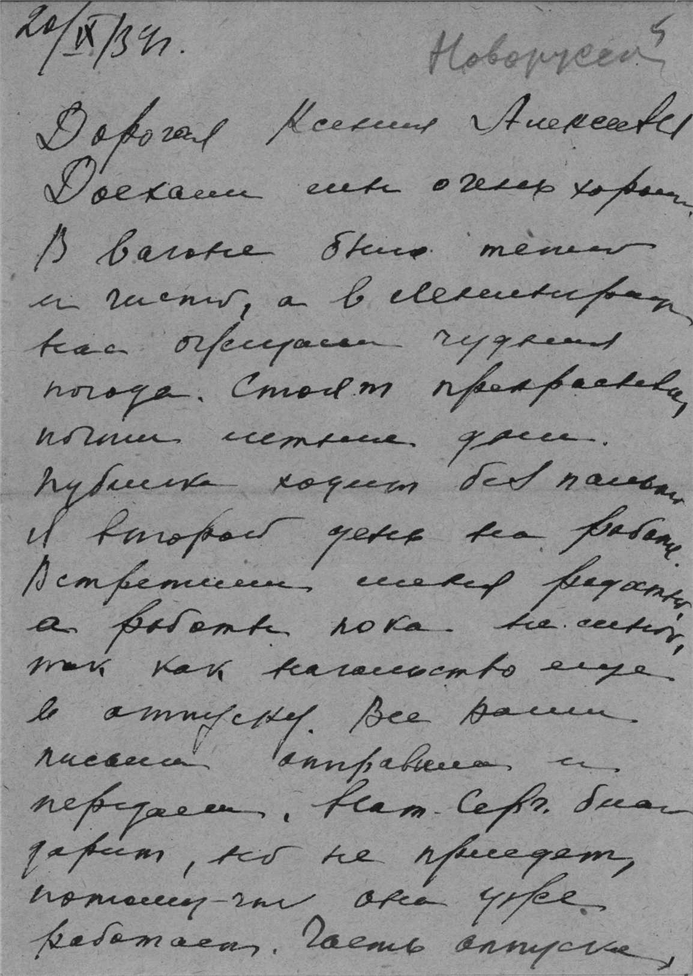 20/IX/34 г.
Новорусси
Дорогая Ксения Алексеевн
Доехали мы очень хорошо.
В вагоне было тепло
и чисто, а в Ленинграде
нас ожидали чудная
погода. Стоят прекрасные,
почти летние дни.
Публика ходит без пальто.
Я второй день на работе.
Встретили меня радостно,
а работы пока не много,
так как начальство еще
в отпуску. Все ваши
письма отправила и
передала. Нат. Серг. благо
дарит, но не приедет,
потому-что она уже
работает. Часть отпуска,